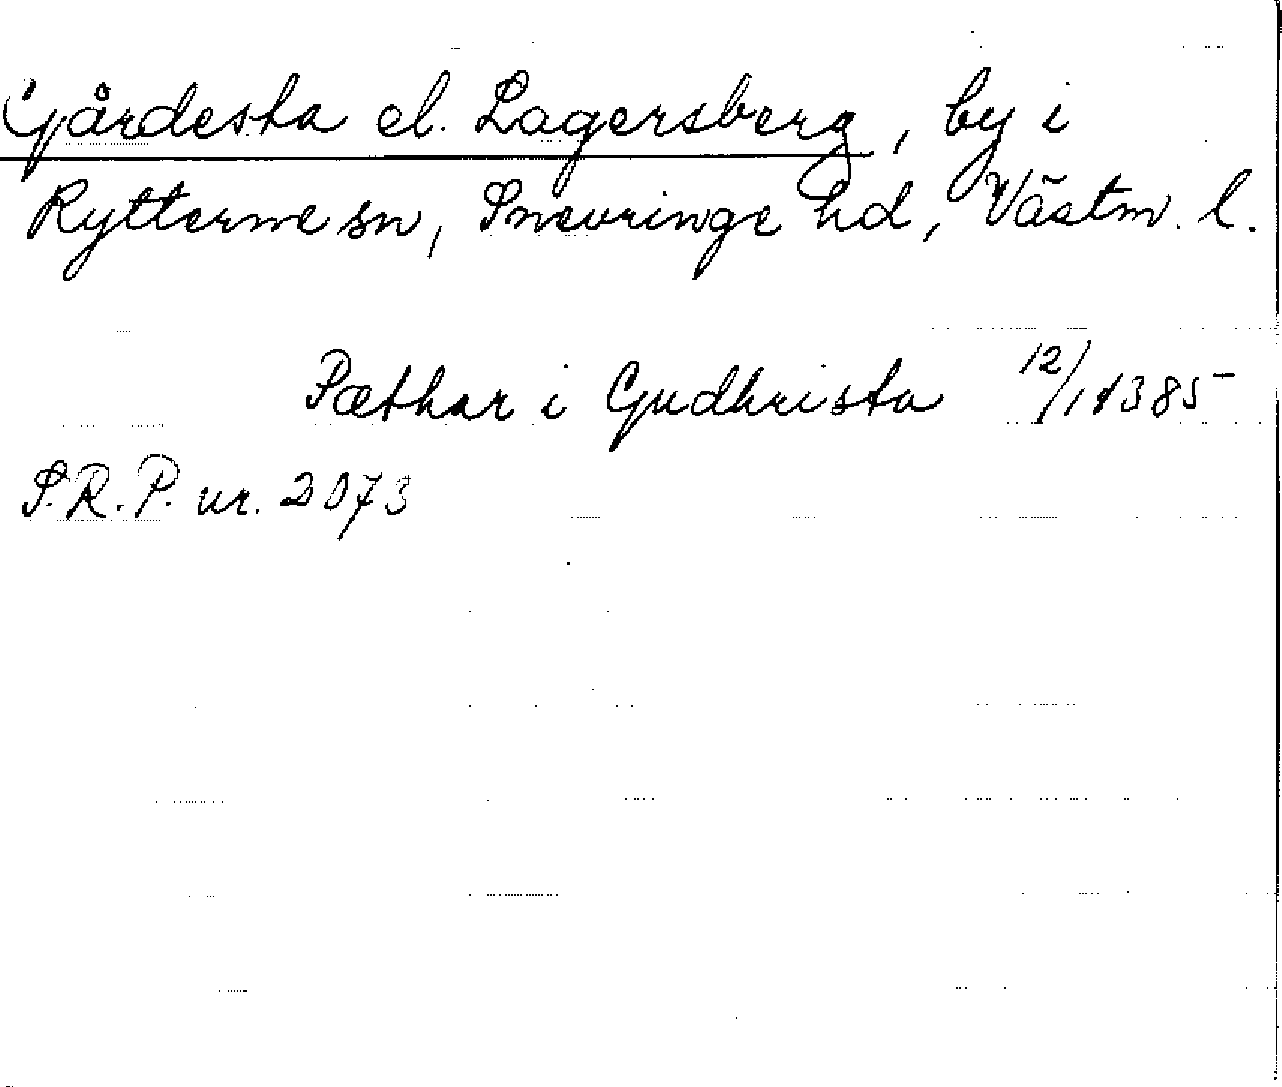 Gårdesta el. Lagersberg, by i
Rytterne sn, Snevringe hd, Västm. l.
Pæthar i Gudhrista 12/1 1385
S.R.P. nr. 2073